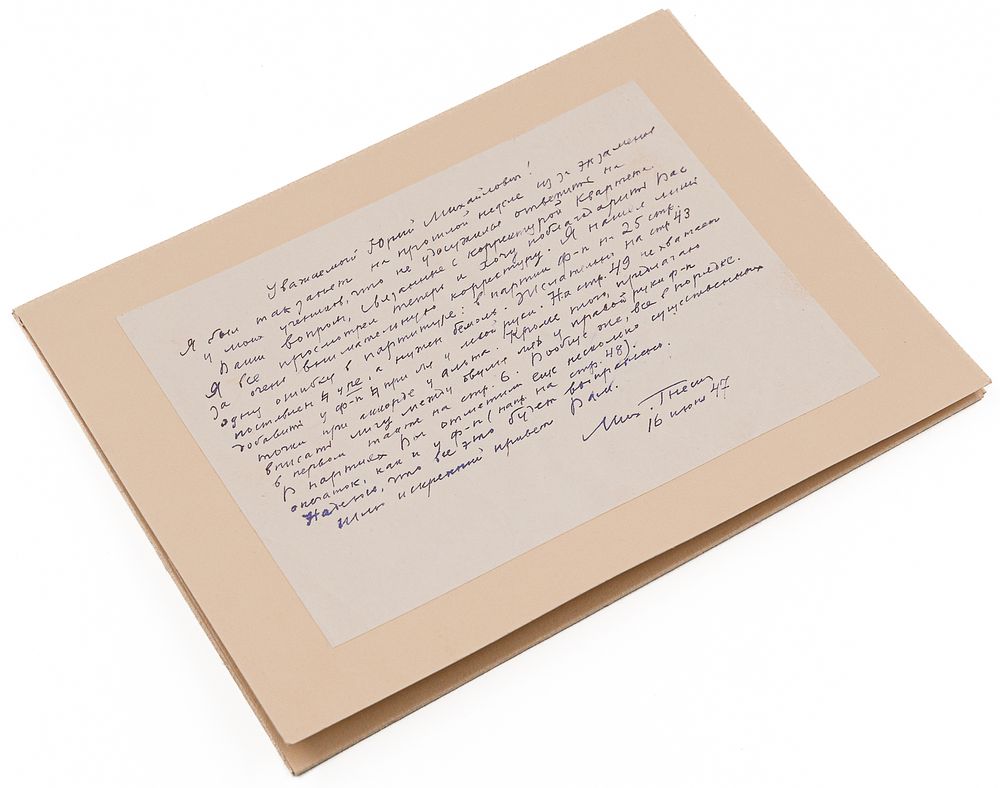 Уважаемый Юрий Михайлович!
Я был так занят на прошлой неделе из-за экзаменов
у моих учеников, что не удосужился ответить на
Ваши вопросы, связанные с корректурой Квартета.
Я все просмотрел теперь и хочу поблагодарить Вас
за очень внимательную корректуру. Я нашел лишь
одну ошибку в партитуре: в партии ф-п на 25 стр.
поставлен ♮ у ре, а нужен бемоль. Желательно на стр 43
добавить у ф-п ♮ при ля у левой руки. На стр. 49 не хватает
точки при аккорде у альта. Кроме того, предлагаю
вписать лигу между двумя ля у правой руки ф-п
в первом такте на стр. 6. Вообще же, все в порядке.
В партиях Вы отметили еще несколько существенных
опечаток, как и у ф-п (напр. на стр. 48).
Надеюсь, что все это будет выправлено.
Шлю искренний привет Вам.
Мих. Гнесин
16 июня 47